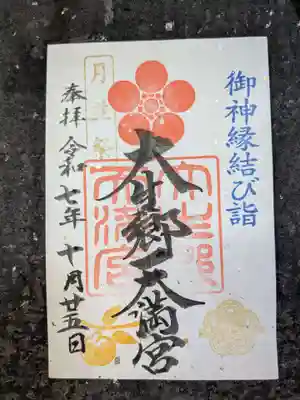 御神縁結び詣
大生郷天満宮
月並祭
奉拝 令和七年 十月廿五日